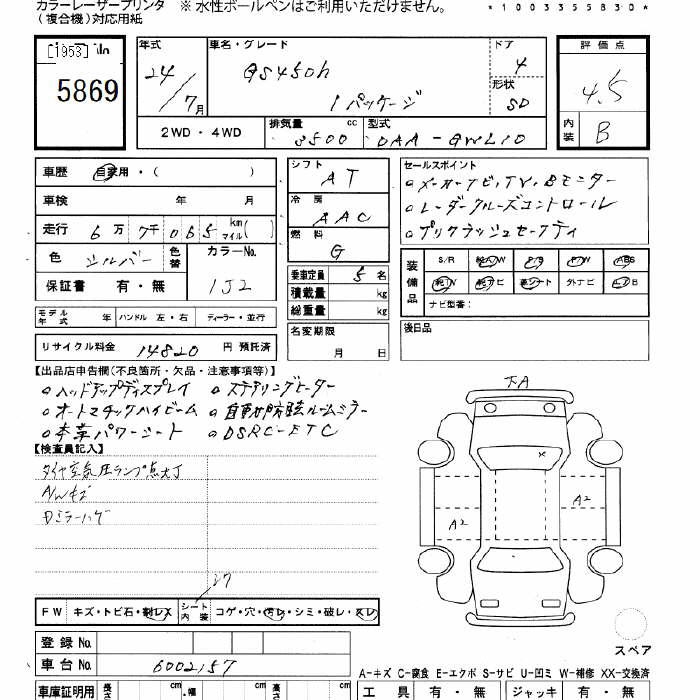 カラーレーザープリンタ ※ 水性ボールペンはご利用いただけません。
(複合機)対応用紙
*1003355830*
[1953]
5869
年式 24/7月
車名・グレード GS450h
Iパッケージ
ドア 4
形状 SD
評価点 4.5
内装 B
2WD・4WD
排気量 3500 cc
型式 DAA-GWL10
車歴 自家用・( )
車検 年 月
走行 6万7千065 km マイル( )
色 シルバー 色替 カラーNo. 1J2
保証書 有・無
モデル年式 年 ハンドル 左・右 ディーラー・並行
リサイクル料金 14820 円 預託済
シフト AT
冷房 AAC
燃料 G
乗車定員 5名
積載量 kg
総重量 kg
名変期限
月 日
セールスポイント
○メーカーナビ,TV,Bモニター
○レーダークルーズコントロール
○プリクラッシュセーフティ
装備品 S/R 純A/W P/S P/W ABS
純TV 純ナビ 革シート 外ナビ エアB
ナビ型番:
後日品
【出品店申告欄(不良箇所・欠品・注意事項等)】
○ヘッドアップディスプレイ ○ステアリングヒーター
○オートマチックハイビーム ○自動防眩ルームミラー
○本革パワーシート ○DSRC-ETC
【検査員記入】
タイヤ空気圧ランプ点灯
A/Wキズ
Dミラーハゲ
シワ
下A
×
A2
A2
FW キズ・トビ石・割レ× シート内装 コゲ・穴・汚レ・シミ・破レ・スレ
登録No.
車台No. 6002157
スペア
A-キズ C-腐食 E-エクボ S-サビ U-凹ミ W-補修 XX-交換済
車庫証明用 長さ cm 幅 cm 高さ cm
工具 有・無 ジャッキ 有・無